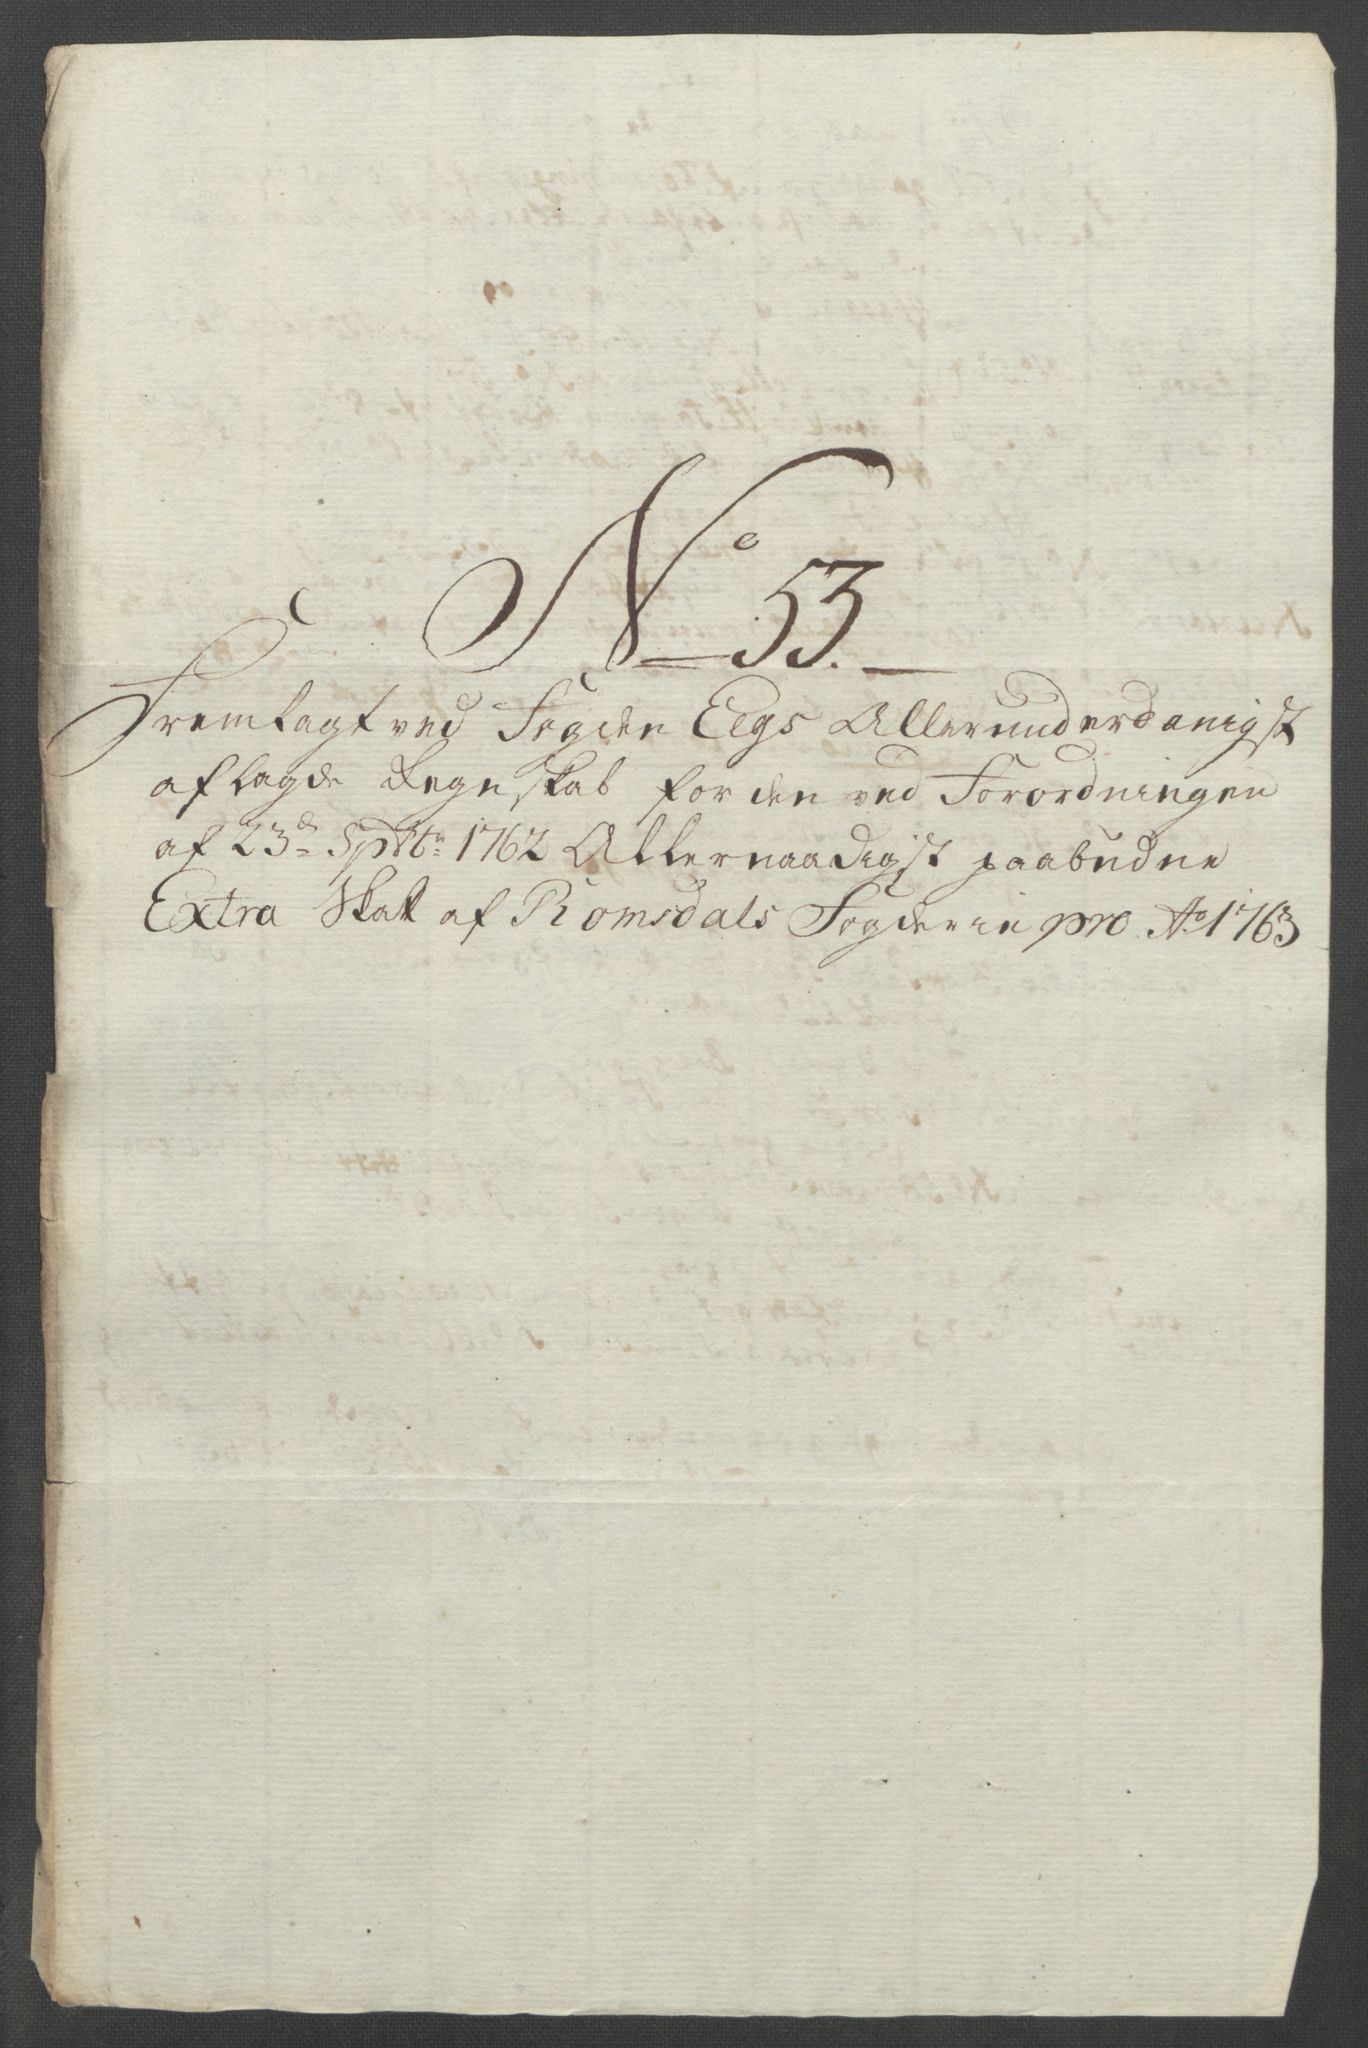 No 53.
Fremlagt ved Fogden Elgs Allerunderdanigst
aflagde Regnskab for den ved Forordningen
af 23de Sptbr 1762 Allernaadigst paabudne
Extra Skatt af Romsdals Fogderie pro Ao 1763